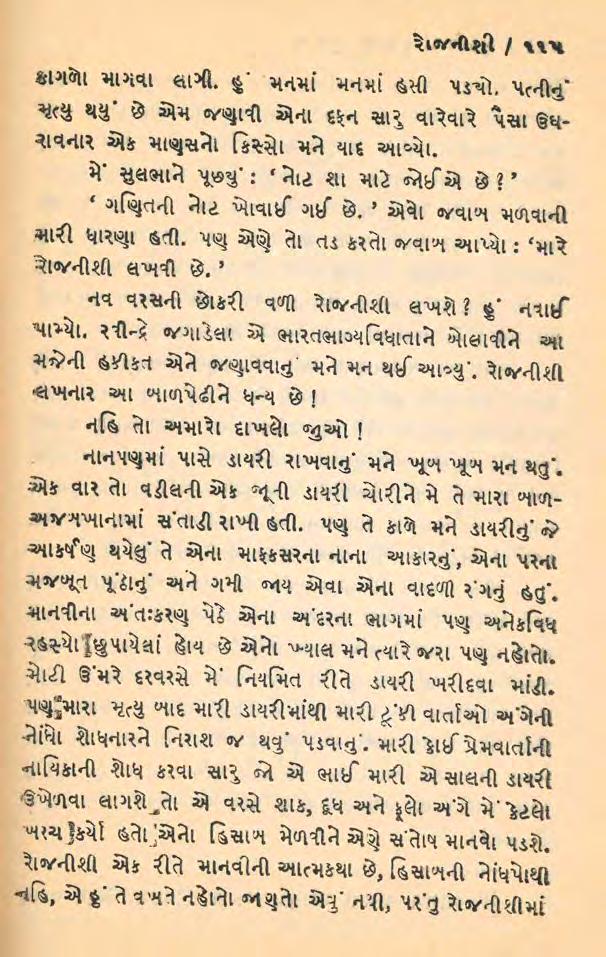 રોજનીશી / ૧૧૫
કાગળો માગવા લાગી. હું મનમાં મનમાં હસી પડયો. પત્નીનું
મૃત્યુ થયું છે એમ જણાવી એના દફન સારુ વારેવારે પૈસા ઉઘ-
રાવનાર એક માણસનો કિસ્સો મને યાદ આવ્યો.
મેં સુલભાને પૂછ્યું : ‘નોટ શા માટે જોઈએ છે ?’
‘ ગણિતની નોટ ખોવાઈ ગઈ છે. ’ એવો જવાબ મળવાની
મારી ધારણા હતી. પણ એણે તો તડ કરતો જવાબ આપ્યો : ‘મારે
રોજનીશી લખવી છે. ’
નવ વરસની છોકરી વળી રોજનીશી લખશે ? હું નવાઈ
પામ્યો. રવીન્દ્રે જગાડેલા એ ભારતભાગ્યવિધાતાને બોલાવીને આ
મજેની હકીકત એને જણાવવાનું મને મન થઈ આવ્યું. રોજનીશી
લખનાર આ બાળપેઢીને ધન્ય છે !
નહિ તો અમારો દાખલો જુઓ !
નાનપણમાં પાસે ડાયરી રાખવાનું મને ખૂબ ખૂબ મન થતું.
એક વાર તો વડીલની એક જૂની ડાયરી ચોરીને મેં તે મારા બાળ-
અજબખાનામાં સંતાડી રાખી હતી. પણ તે કાળે મને ડાયરીનું જે
આકર્ષણ થયેલું તે એના માફકસરના નાના આકારનું, એના પરના
મજબૂત પૂંઠાનું અને ગમી જાય એવા એના વાદળી રંગનું હતું.
માનવીના અંતઃકરણ પેઠે એના અંદરના ભાગમાં પણ અનેકવિધ
રહસ્યો છુપાયેલાં હોય છે એનો ખ્યાલ મને ત્યારે જરા પણ નહોતો.
મોટી ઉંમરે દરવરસે મેં નિયમિત રીતે ડાયરી ખરીદવા માંડી.
પણ મારા મૃત્યુ બાદ મારી ડાયરીમાંથી મારી ટૂંકી વાર્તાઓ અંગેની
નોંધો શોધનારને નિરાશ જ થવું પડવાનું. મારી કોઈ પ્રેમવાર્તાની
નાયિકાની શોધ કરવા સારુ જો એ ભાઈ મારી એ સાલની ડાયરી
ઉખેળવા લાગશે તો એ વરસે શાક, દૂધ અને ફૂલો અંગે મેં કેટલો
ખરચ કર્યો હતો એનો હિસાબ મેળવીને એણે સંતોષ માનવો પડશે.
રોજનીશી એક રીતે માનવીની આત્મકથા છે, હિસાબની નોંધપોથી
નહિ, એ હું તે વખતે નહોતો જાણતો એવું નથી, પરંતુ રોજનીશીમાં